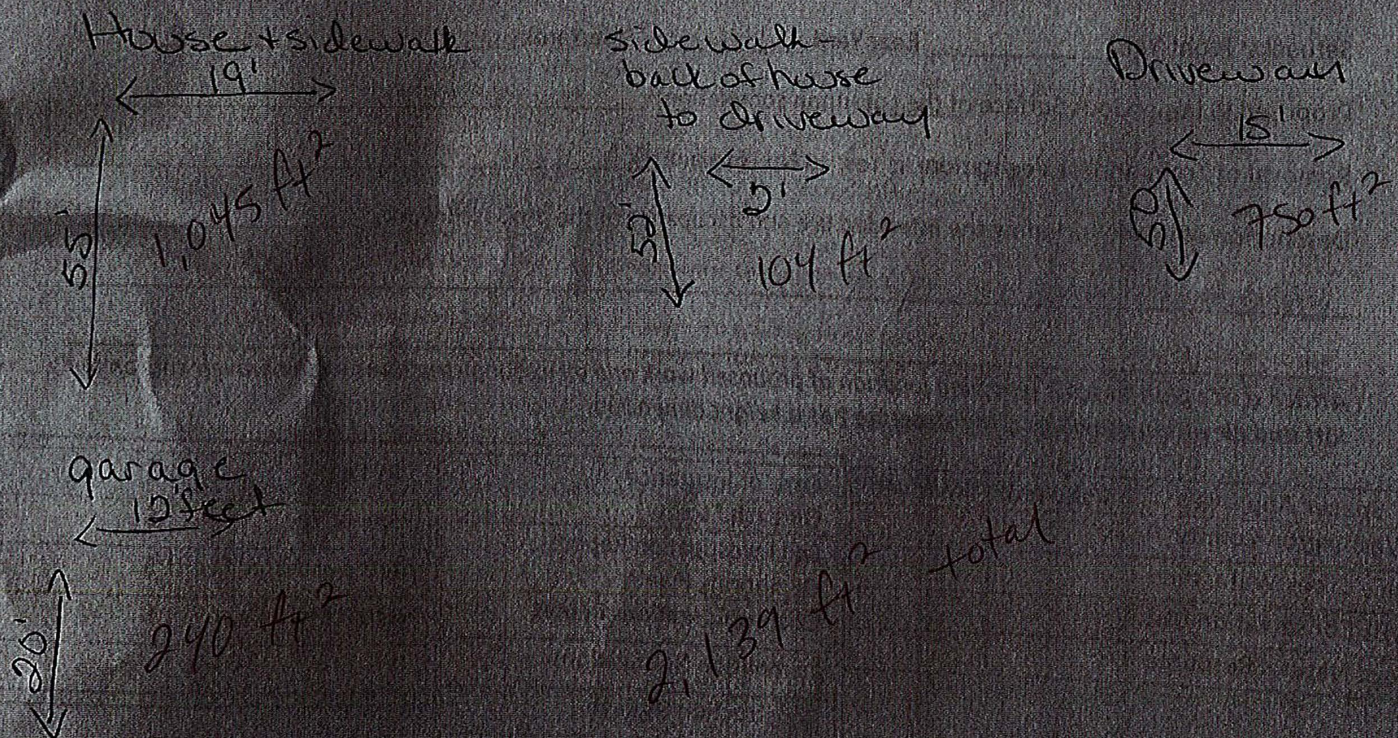 House + sidewalk
19'
55'
1,045 ft²
sidewalk -
back of house
to driveway
2'
52'
104 ft²
Driveway
15'
50'
750 ft²
garage
12 feet
20'
240 ft²
2,139 ft² total